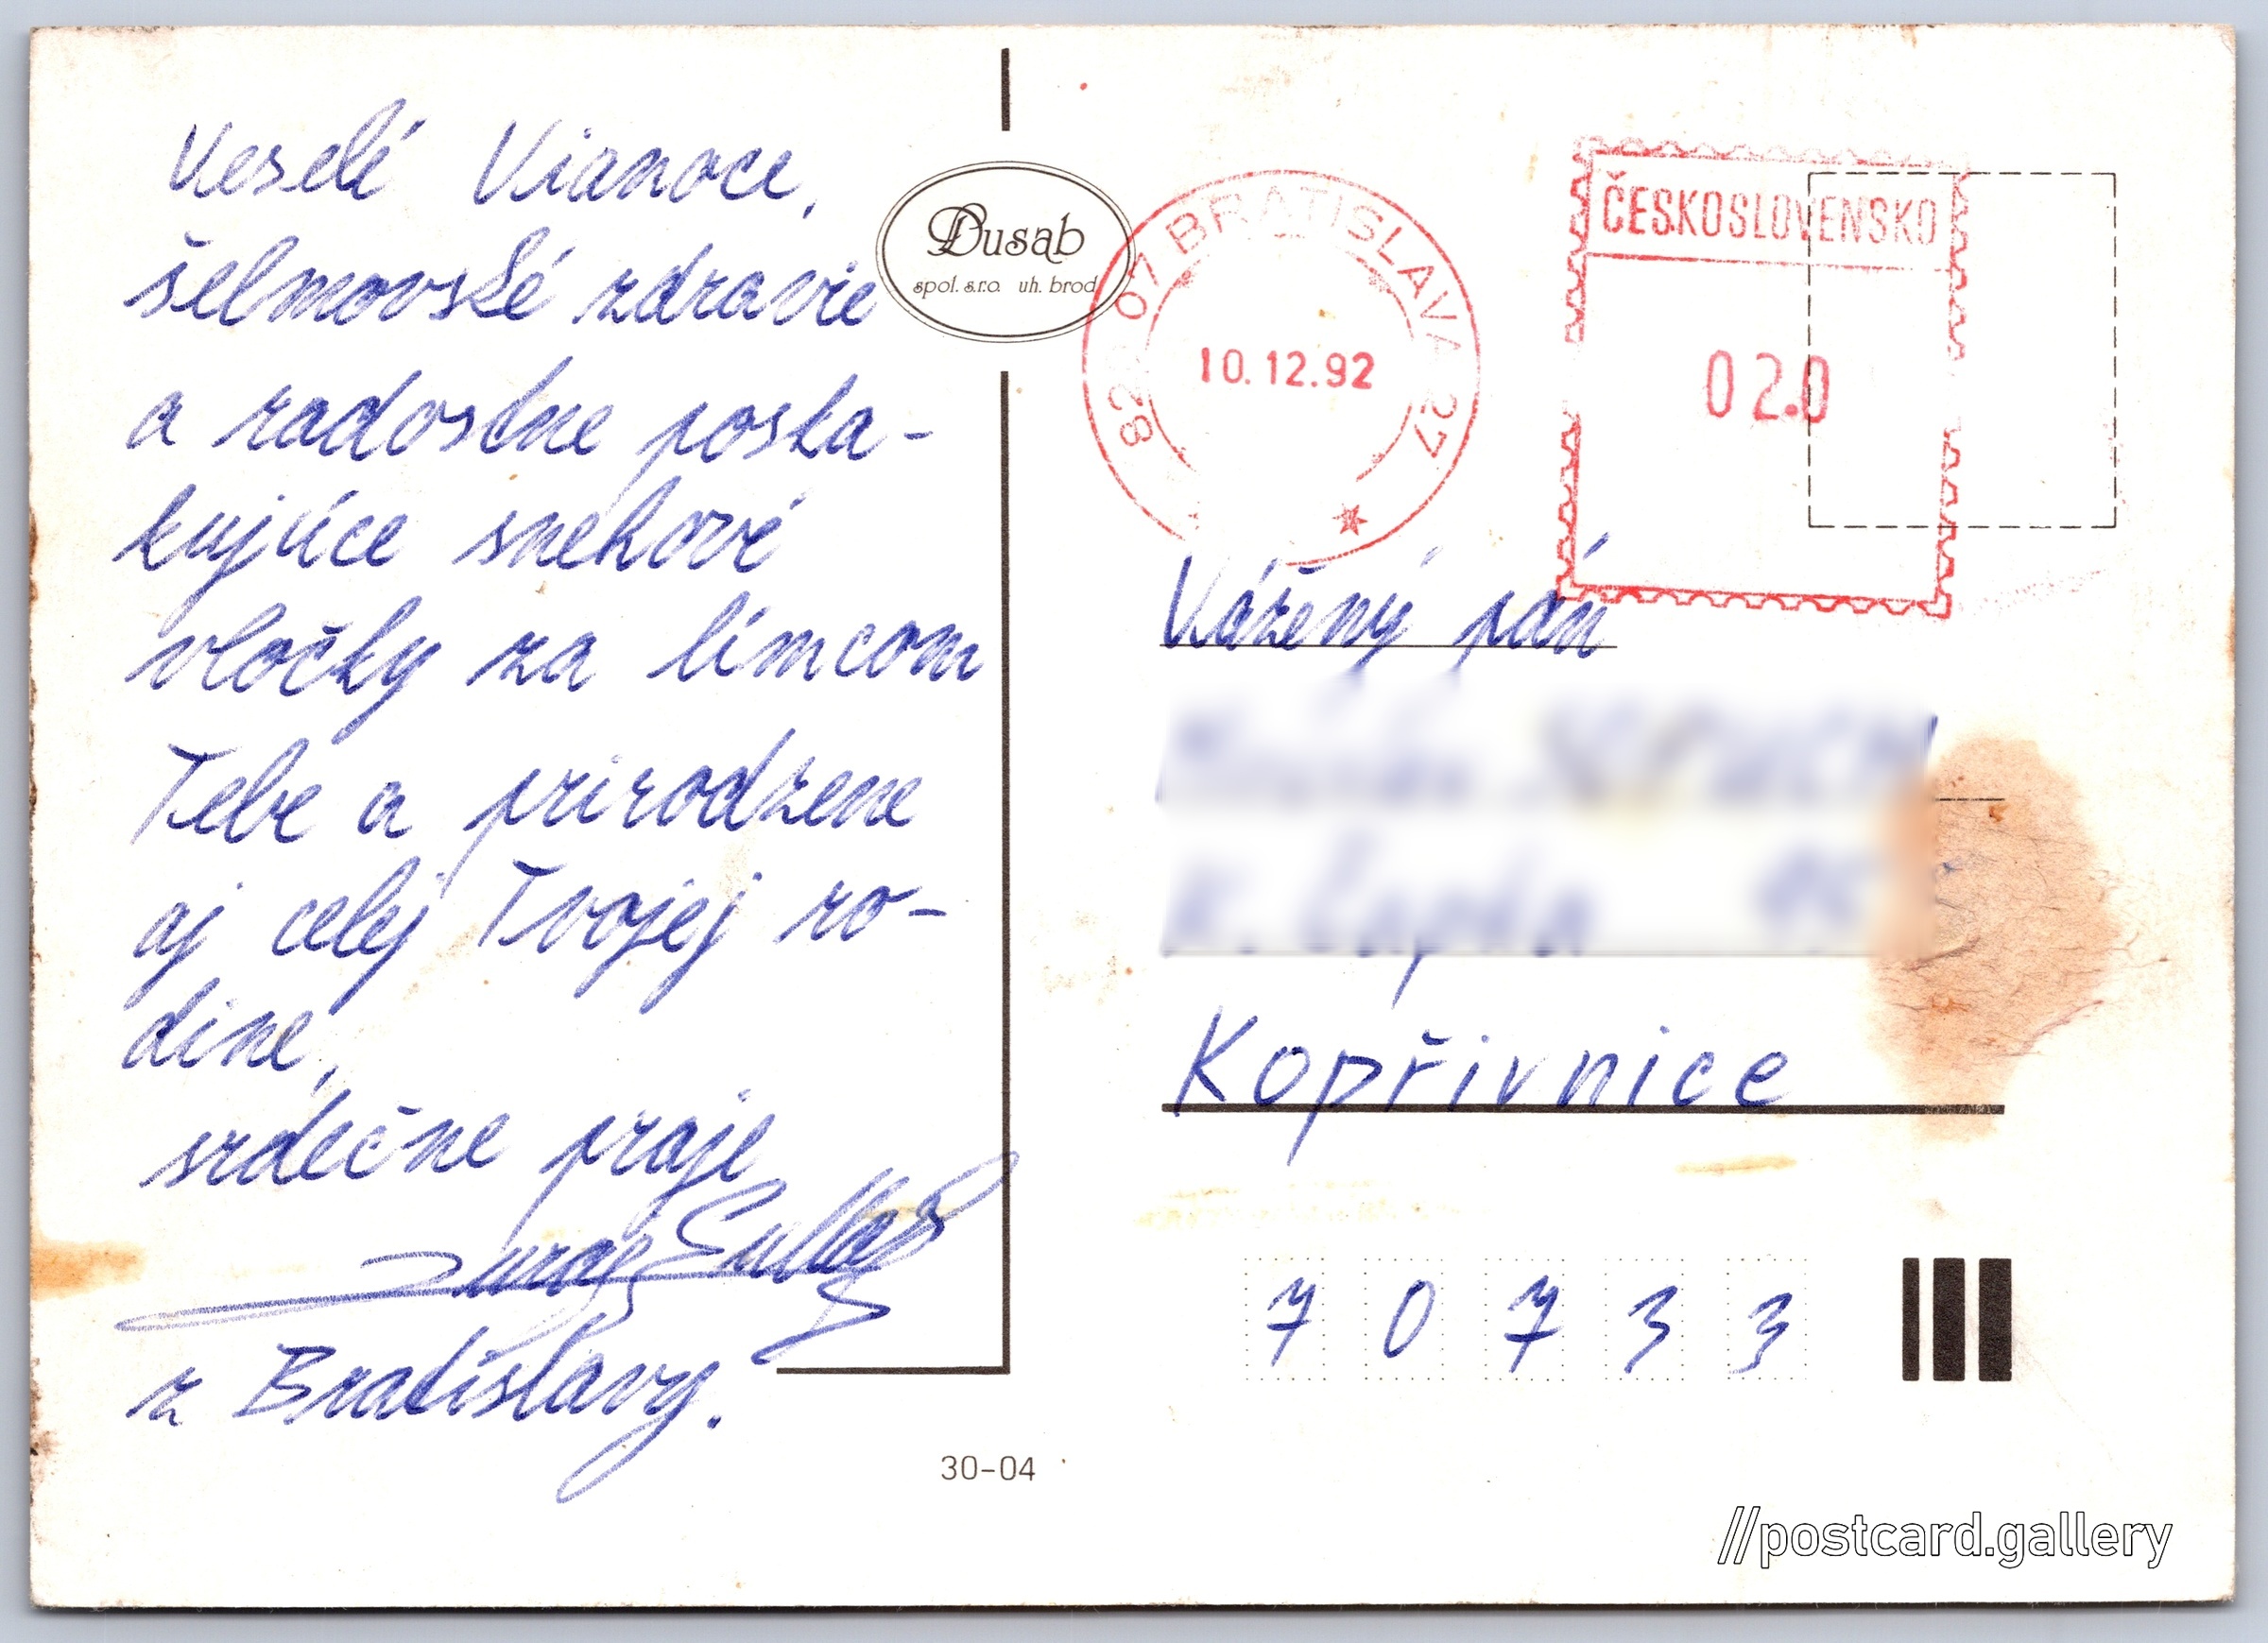 Veselé Vianoce,
šelmovské zdravie
a radostne poska-
kujúce snehové
vločky za límcom
Tebe a prirodzene
aj celej Tvojej ro-
dine,
srdečne praje
Juraj
z Bratislavy.
Dusab
spol. s.r.o. uh. brod
07 BRATISLAVA 27
10.12.92
ČESKOSLOVENSKO
02.0
Vážený pán
Kopřivnice
70733
30-04
//postcard.gallery